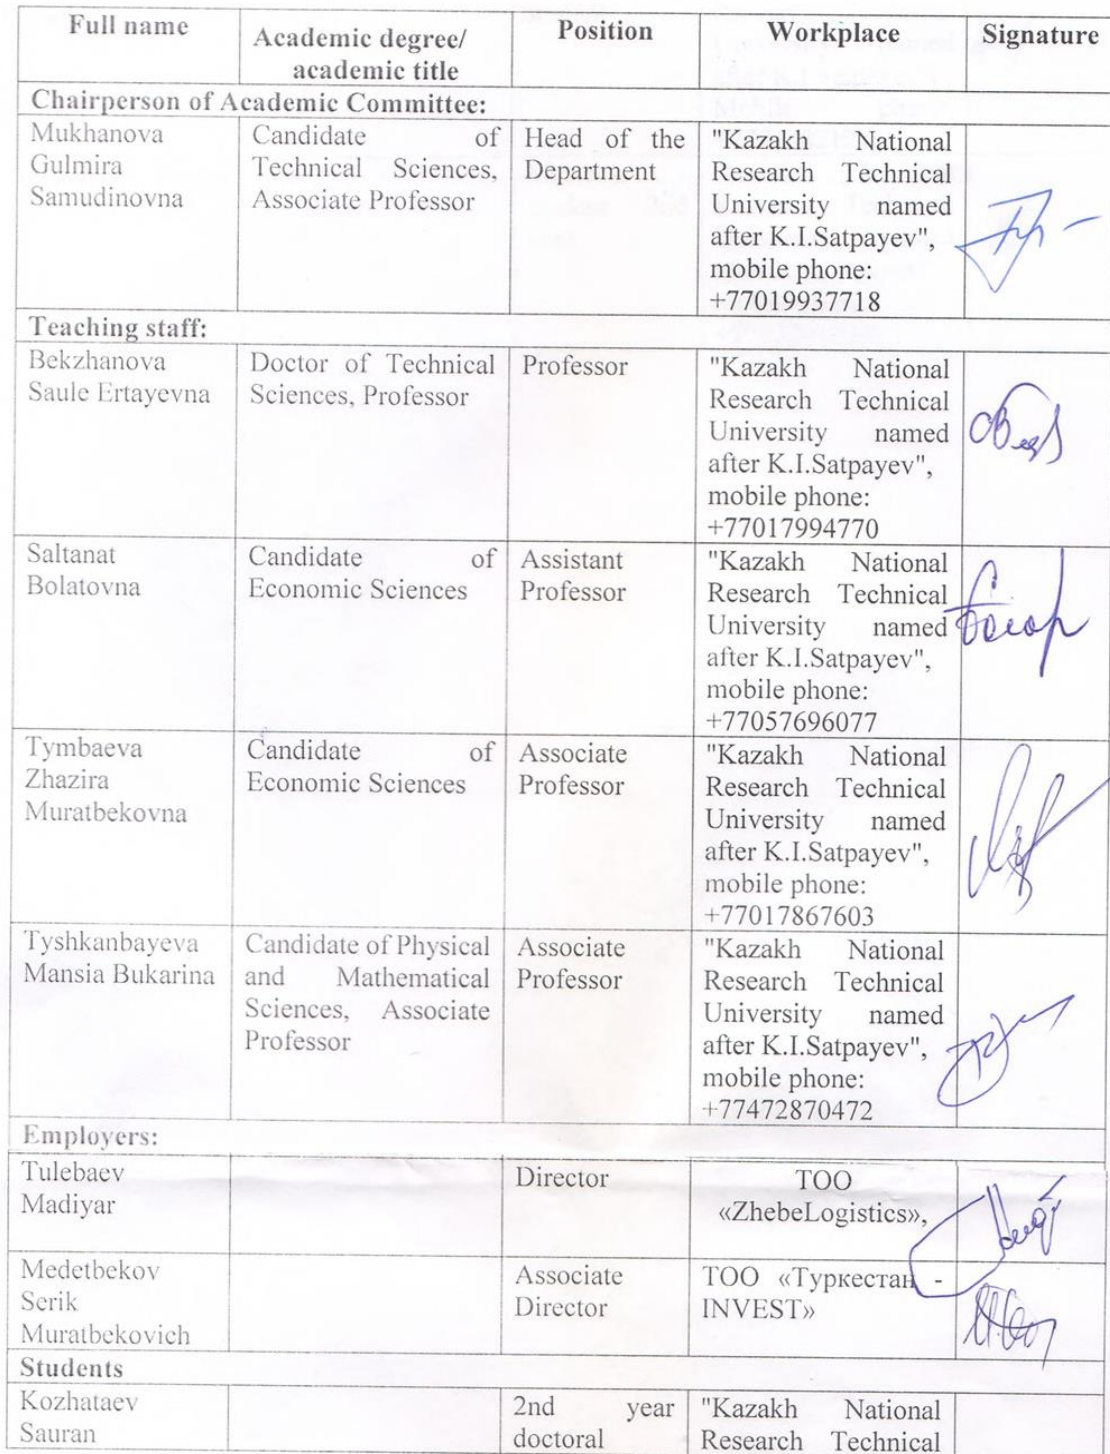 Full name
Academic degree/
academic title
Position
Workplace
Signature
Chairperson of Academic Committee:
Mukhanova
Gulmira
Samudinovna
Candidate of
Technical Sciences,
Associate Professor
Head of the
Department
"Kazakh National
Research Technical
University named
after K.I.Satpayev",
mobile phone:
+77019937718
Teaching staff:
Bekzhanova
Saule Ertayevna
Doctor of Technical
Sciences, Professor
Professor
"Kazakh National
Research Technical
University named
after K.I.Satpayev",
mobile phone:
+77017994770
Saltanat
Bolatovna
Candidate of
Economic Sciences
Assistant
Professor
"Kazakh National
Research Technical
University named
after K.I.Satpayev",
mobile phone:
+77057696077
Tymbaeva
Zhazira
Muratbekovna
Candidate of
Economic Sciences
Associate
Professor
"Kazakh National
Research Technical
University named
after K.I.Satpayev",
mobile phone:
+77017867603
Tyshkanbayeva
Mansia Bukarina
Candidate of Physical
and Mathematical
Sciences, Associate
Professor
Associate
Professor
"Kazakh National
Research Technical
University named
after K.I.Satpayev",
mobile phone:
+77472870472
Employers:
Tulebaev
Madiyar
Director
ТОО
«ZhebeLogistics»,
Medetbekov
Serik
Muratbekovich
Associate
Director
ТОО «Туркестан -
INVEST»
Students
Kozhataev
Sauran
2nd year
doctoral
"Kazakh National
Research Technical